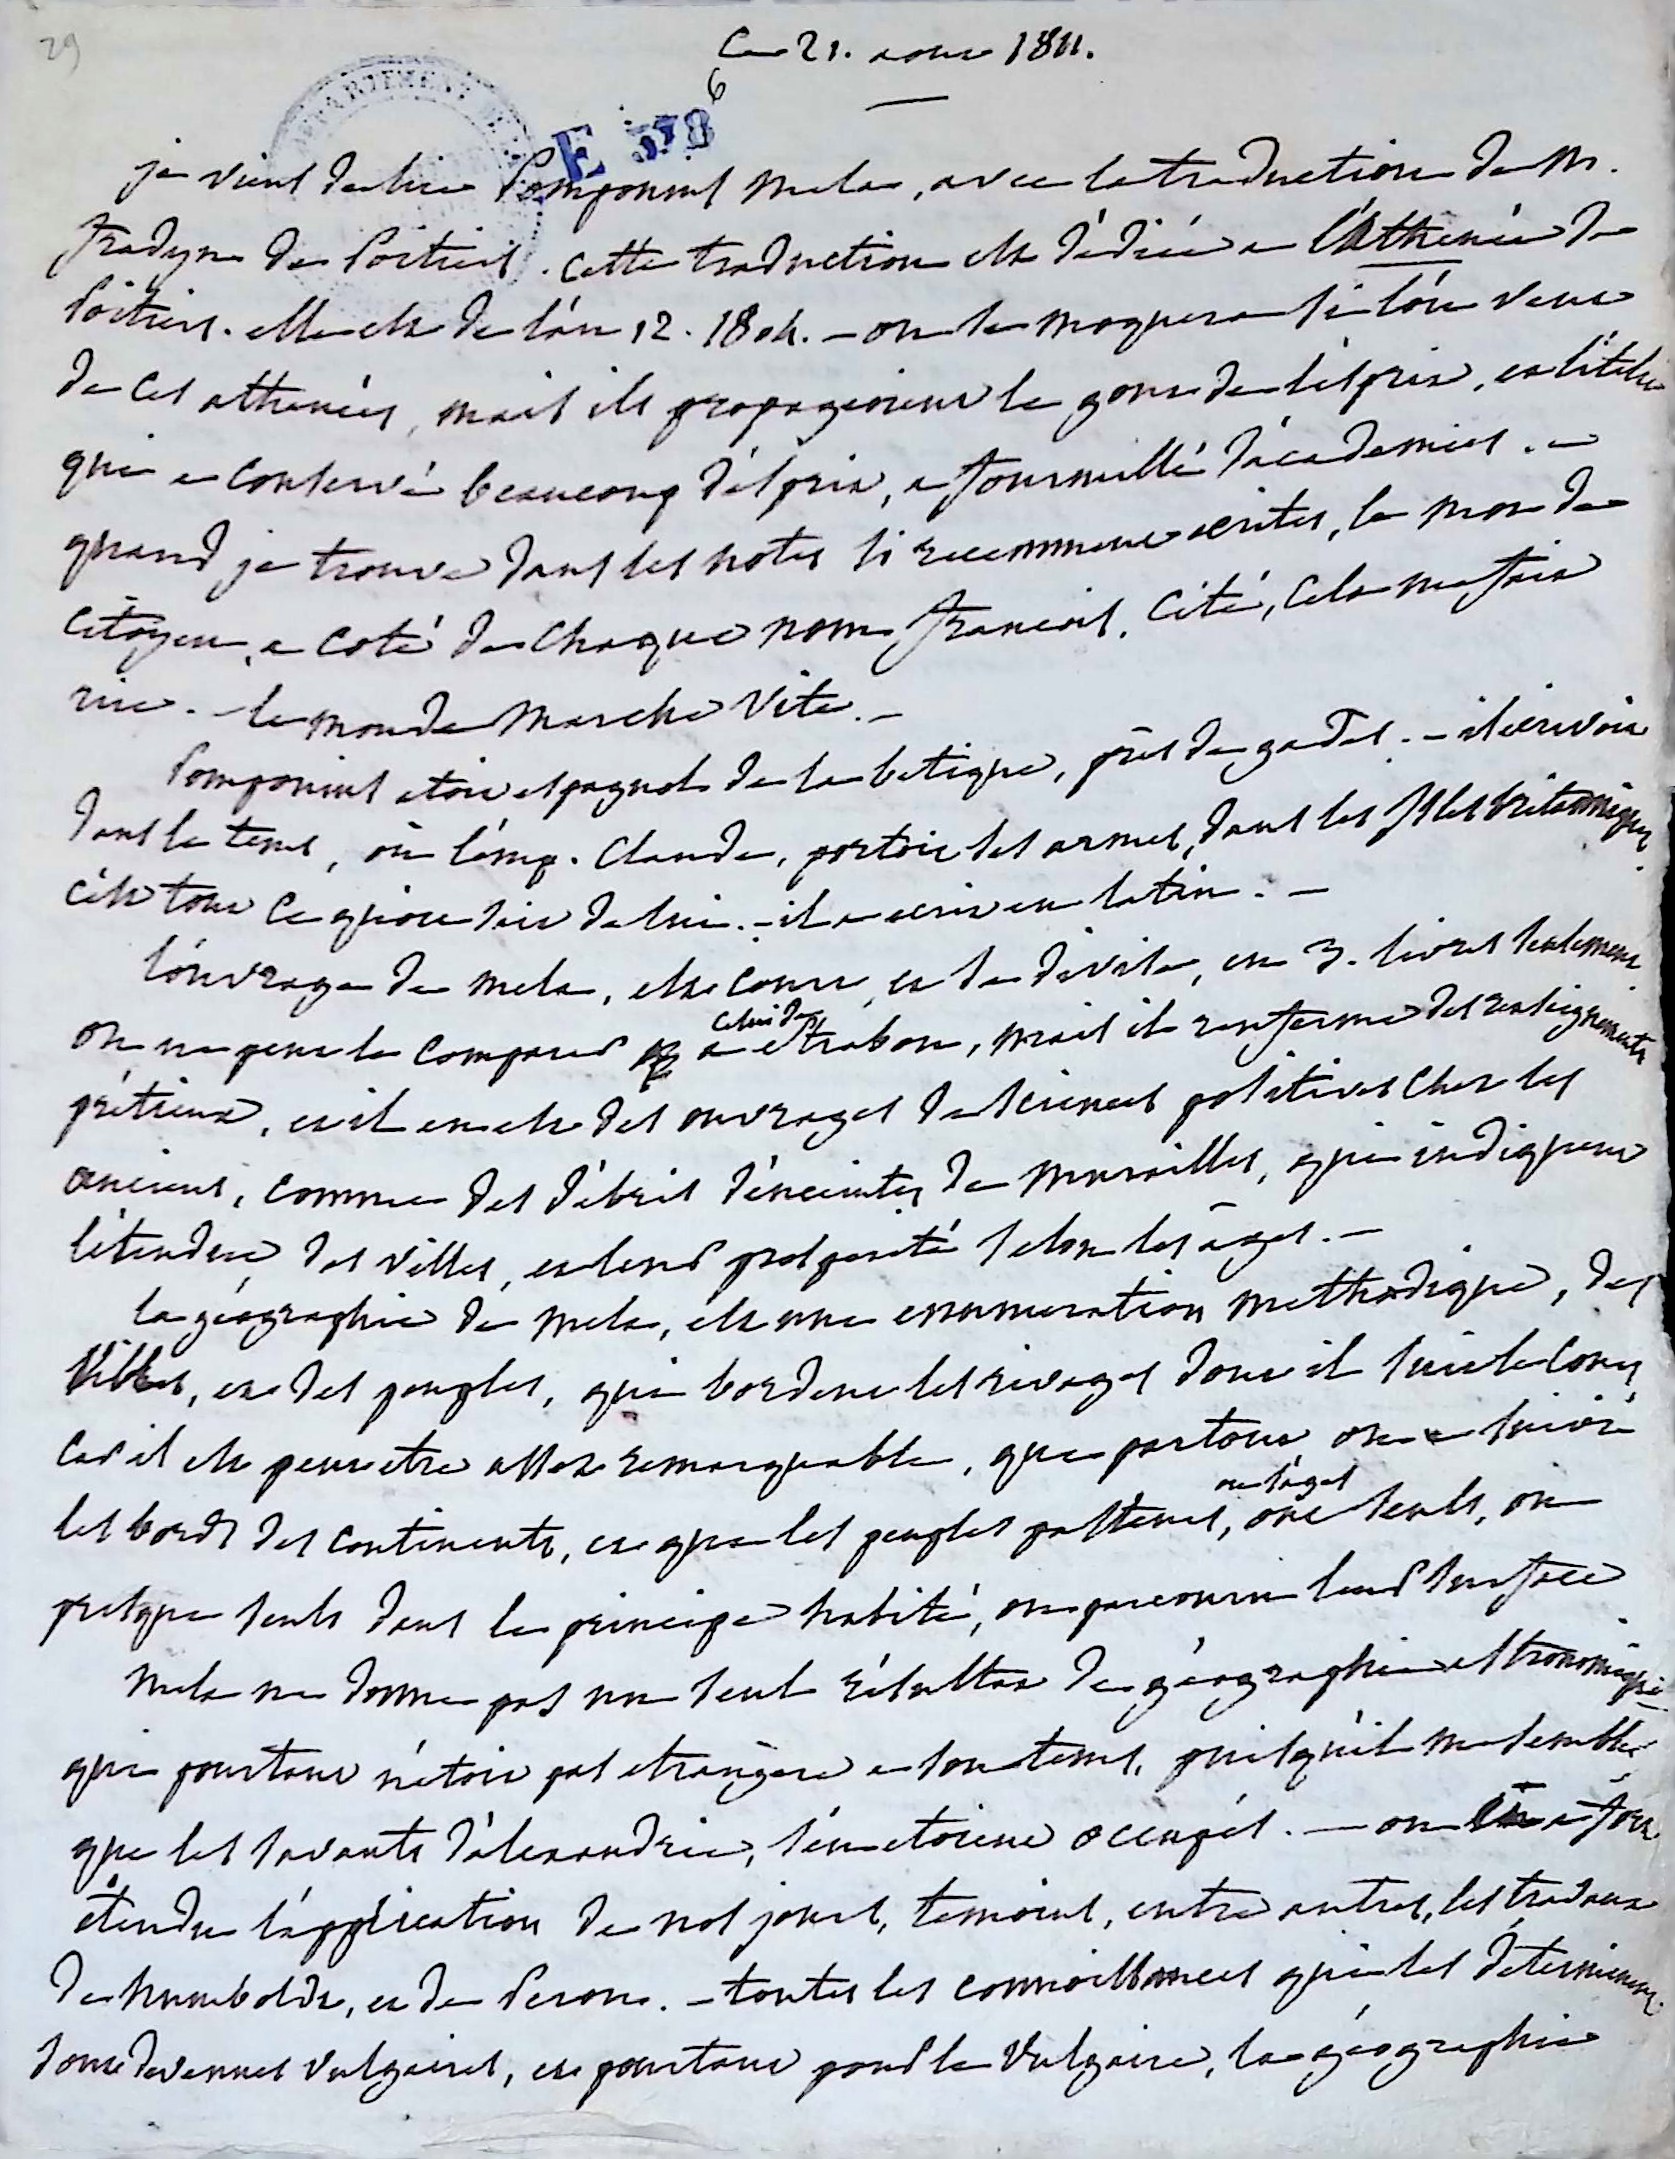 29
Ce 21. aout 1811.
6
E 378
je viens de lire Pomponius Mela, avec la traduction de M.
fradin de Poitiers. cette traduction est dédiée a l'Athenée de
Poitiers. elle est de l'an 12. 1804. – on se moquera si l'on veut
de ces athenées, mais ils propageoient le gout de l'esprit, et l'italie
qui a conservé beaucoup d'esprit, a fourmillé d'academies. –
quand je trouve dans les notes si recemment ecrites, le mot de
Citoyen, a coté de chaque nom françois, cité, cela me fait
rire. – le monde marche vite. –
Pomponius etoit espagnol de la betique, près de gades. – il ecrivoit
dans le tems, où l'emp. Claude, portoit les armes, dans les Isles britanniques
c'est tout ce qu'on sait de lui. – il a ecrit en latin. –
l'ouvrage de mela, est court, et se divise, en 3. livres seulement
on ne peut le comparer a celui de strabon, mais il renferme des renseignements
prétieux, et il en est des ouvrages de sciences positives chez les
anciens, comme des débris d'enceintes de murailles, qui indiquent
l'étendue des villes, et leur prosperité selon les âges. –
la géographie de mela, est une enumeration methodique, des
villes, et des peuples, qui bordent les rivages dont il suit le cours
car il est peut etre assez remarquable, que partout on a suivi
les bords des continents, et que les peuples pasteurs, ou sages ont seuls, ou
presque seuls dans le principe habité, ou parcouru leur surface
mela ne donne pas un seul résultat de géographie astronomique
qui pourtant n'etoit pas etrangère a son tems, puisqu'il me semble
que les savants d'alexandrie, s'en etoient occupés. – on en a fort
étendu l'application de nos jours, temoins, entre autres, les travaux
de humboldt, et de Peron. – toutes les connoissances qui les determinent
sont devenues vulgaires, et pourtant pour le vulgaire, la géographie